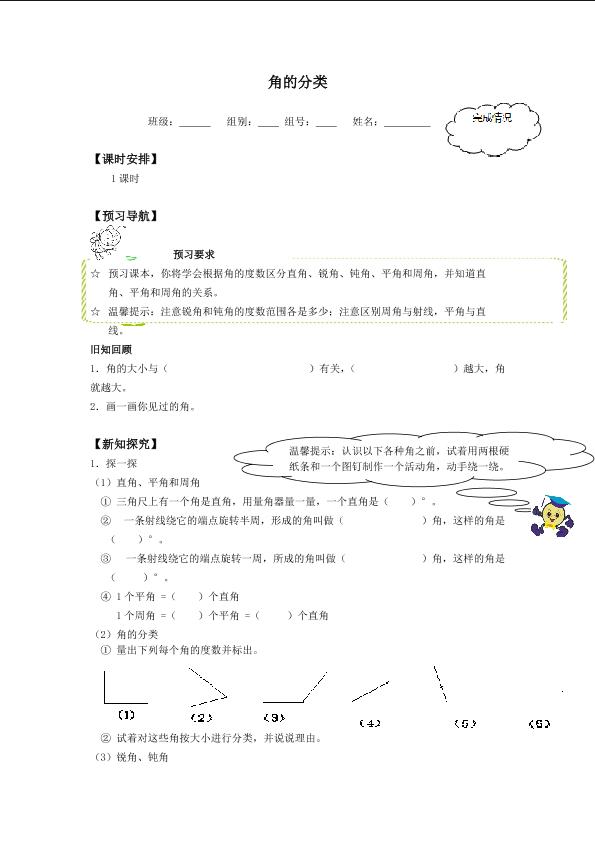 角的分类
完成情况
班级：______ 组别：____ 组号：____ 姓名：_________
【课时安排】
1课时
【预习导航】
预习要求
☆ 预习课本，你将学会根据角的度数区分直角、锐角、钝角、平角和周角，并知道直
角、平角和周角的关系。
☆ 温馨提示：注意锐角和钝角的度数范围各是多少；注意区别周角与射线，平角与直
线。
旧知回顾
1．角的大小与（ ）有关，（ ）越大，角
就越大。
2．画一画你见过的角。
【新知探究】
温馨提示：认识以下各种角之前，试着用两根硬
纸条和一个图钉制作一个活动角，动手绕一绕。
1．探一探
（1）直角、平角和周角
① 三角尺上有一个角是直角，用量角器量一量，一个直角是（ ）°。
② 一条射线绕它的端点旋转半周，形成的角叫做（ ）角，这样的角是
（ ）°。
③ 一条射线绕它的端点旋转一周，所成的角叫做（ ）角，这样的角是
（ ）°。
④ 1个平角 =（ ）个直角
1个周角 =（ ）个平角 =（ ）个直角
（2）角的分类
① 量出下列每个角的度数并标出。
（1） （2） （3） （4） （5） （6）
② 试着对这些角按大小进行分类，并说说理由。
（3）锐角、钝角